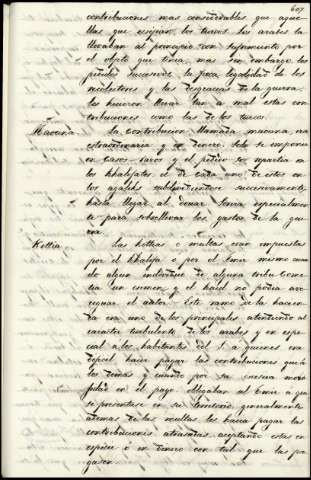 607
contribuciones mas considerables que aque-
llas que exijian los turcos los arabes la
llevaban al principio con sufrimiento por
el objeto que tenia mas sin embargo los
pedidos sucesivos, la poca legalidad de los
recolectores y las desgracias de la guerra
les hicieron llevar tan a mal estas con-
tribuciones como las de los turcos.
Maouna La contribucion llamada maouna, era
estraordinaria y en dinero. Solo se imponia
en casos raros y el pedido se repartia en
los khalifatos el de cada uno de estos en
los agaliks subdividiendose sucesivamente
hasta llegar al douar. Servia especialmen-
te para sobrellevar los gastos de la gue-
rra.
Kottia Las kottias o multas eran impuestas
por el khalifa o por el Emir mismo cuan-
do algun individuo de alguna tribu come-
tia un crimen y el kaid no podia ave-
riguar el autor. Este ramo de la hacien-
da era uno de los principales atendiendo al
caracter turbulento de los arabes y en espe-
cial a los habitantes del S. a quienes era
dificil hacer pagar las contribuciones que a
los demas y cuando por su mucha moro-
sidad en el pago obligaban al Emir a que
se presentase en su territorio, generalmente
ademas de las multas les hacia pagar las
contribuciones atrasadas, aceptando estas en
especie o en dinero con tal que las pa-
gasen.